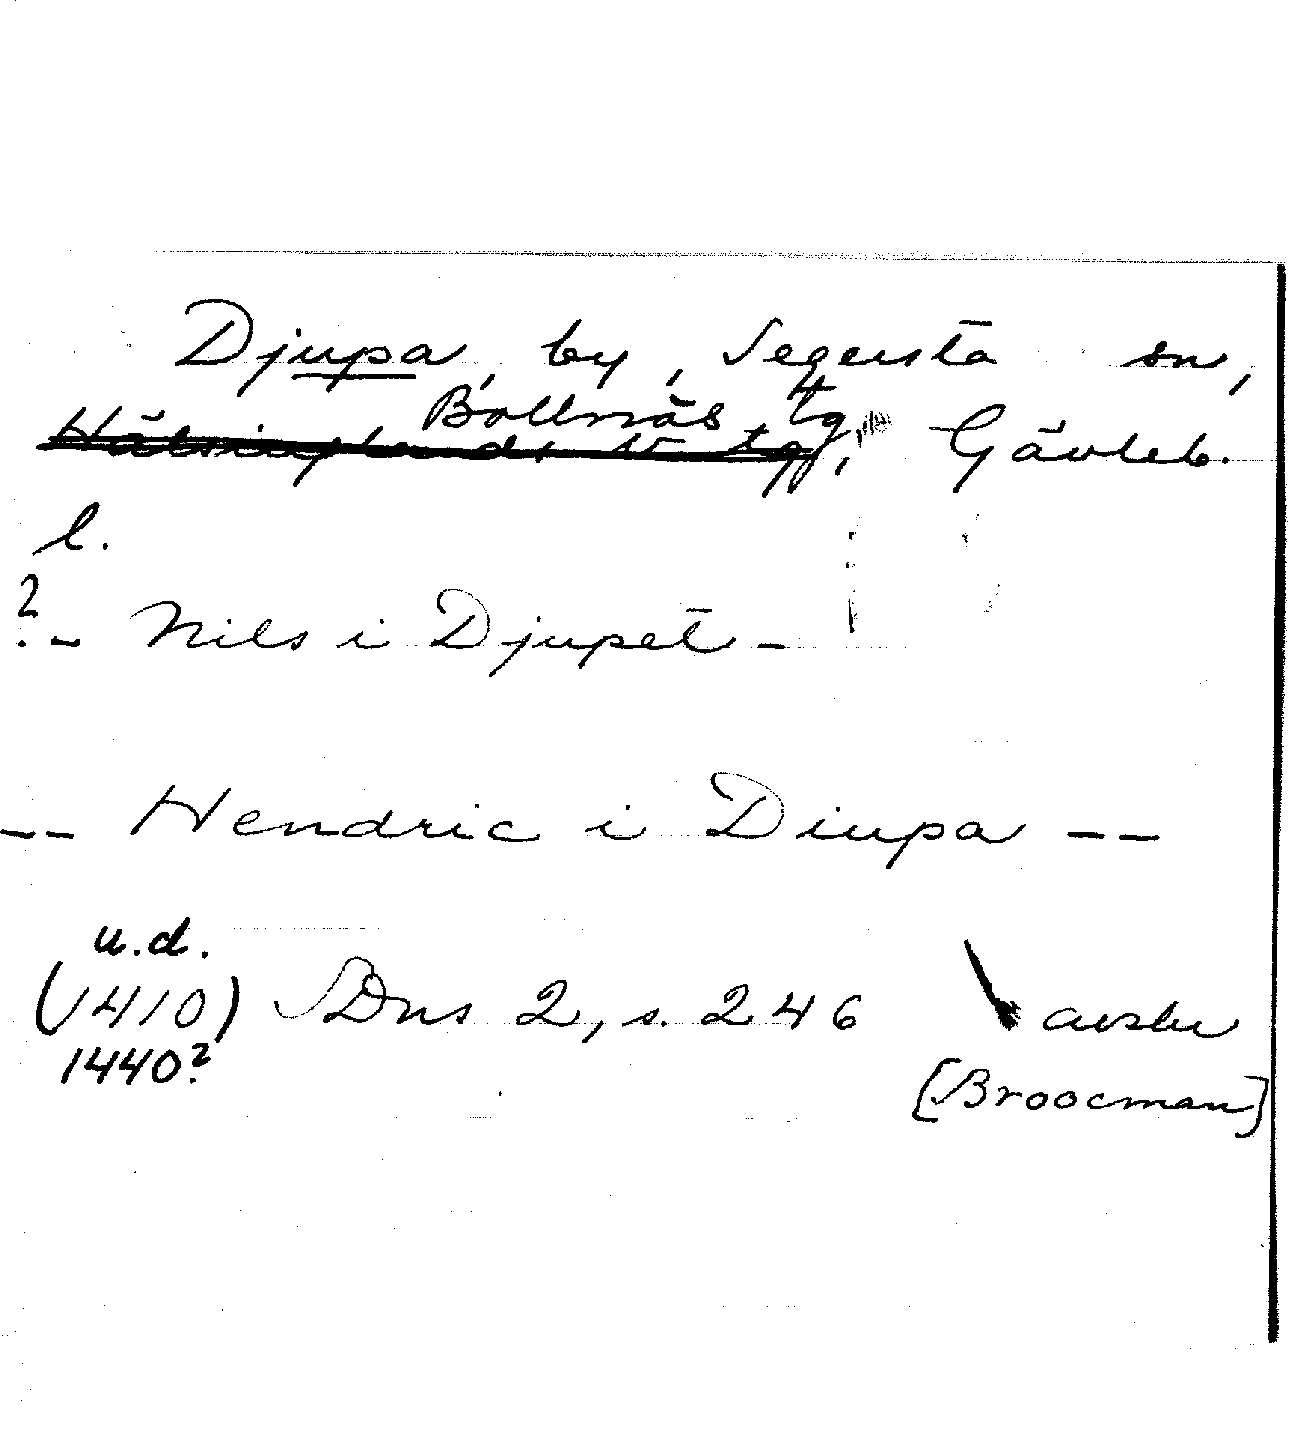 Djupa, by, Segerstā sn,
Bollnäs tg
Hälsinglands v tg, Gävleb.
l.
? - Nils i Djupet̄ -
-- Hendric i Diupa --
u.d.
(1410) SDns 2, s. 246 avskr
1440? [Broocman]